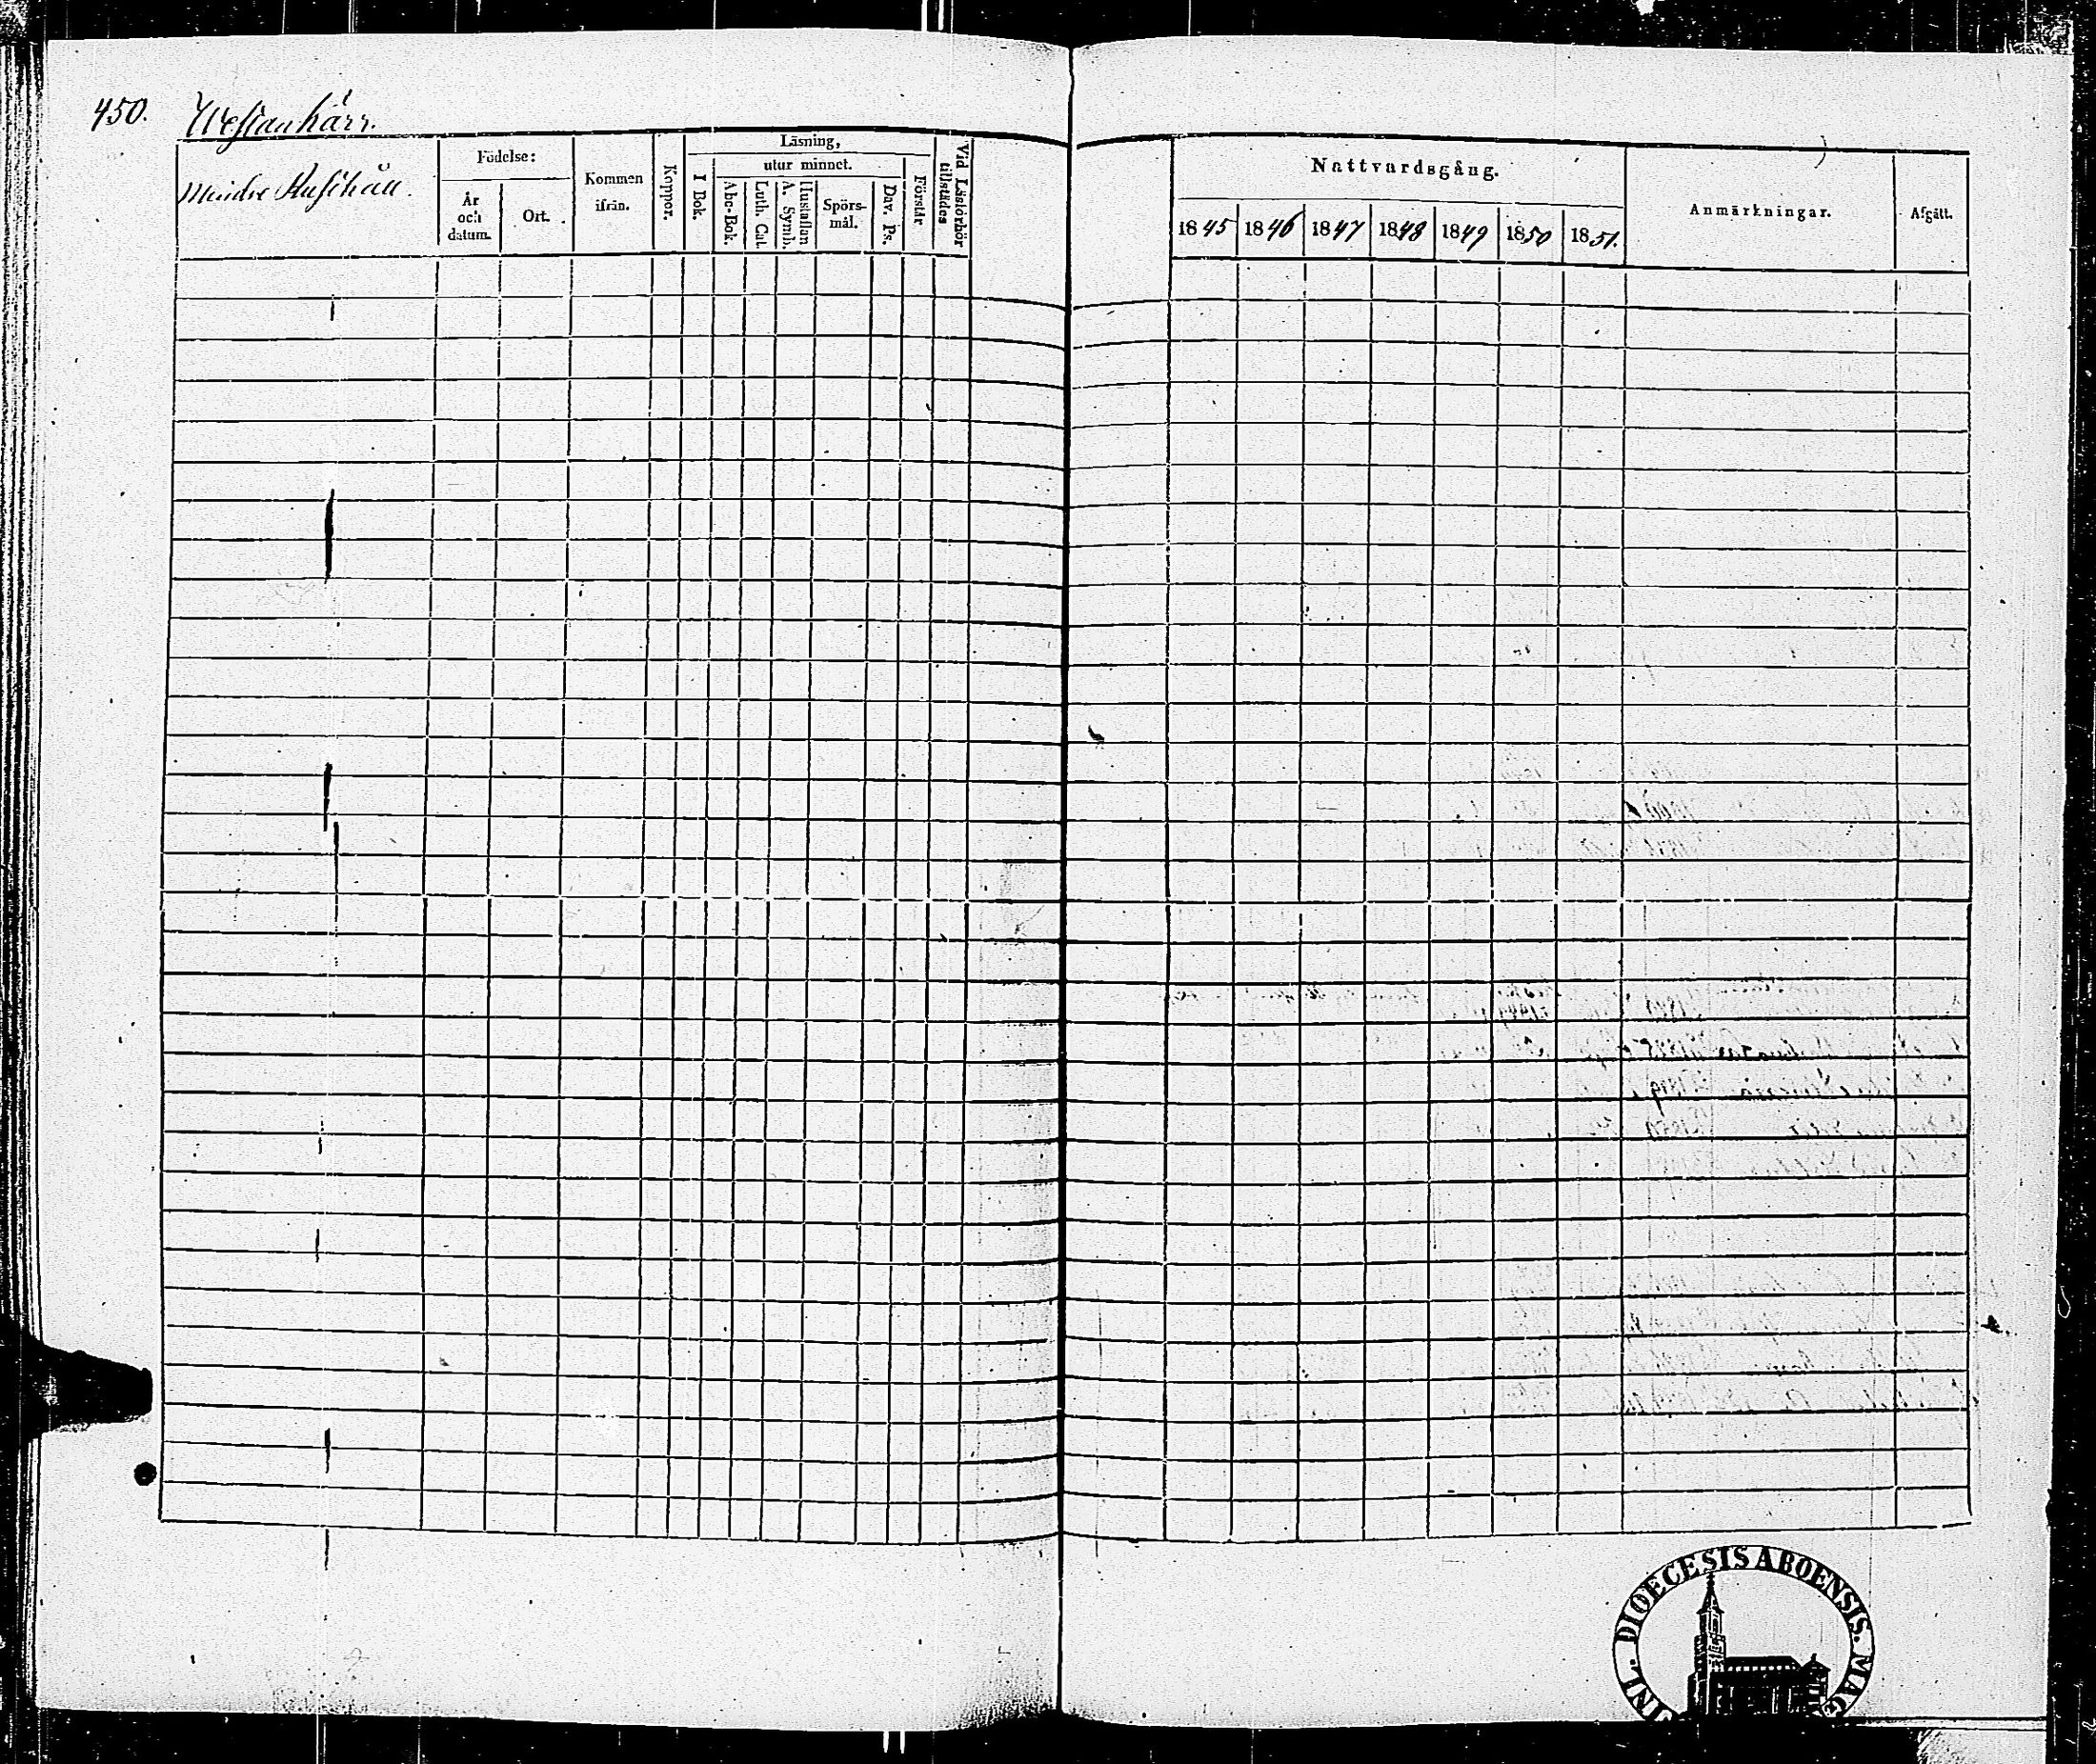 450. Westankärr.
Mindre Hushåll.
Födelse:
År och datum.
Ort.
Kommen ifrån.
Koppor.
Läsning,
I Bok.
utur minnet.
Abc-Bok.
Luth. Cat.
Hustaflan A. Symb.
Spörs-mål.
Dav. Ps.
Förstår
Vid Läsförhör tillstädes
Nattvardsgång.
1845 1846 1847 1848 1849 1850 1851.
Anmärkningar.
Afgått.
DIOECESIS ABOENSIS.